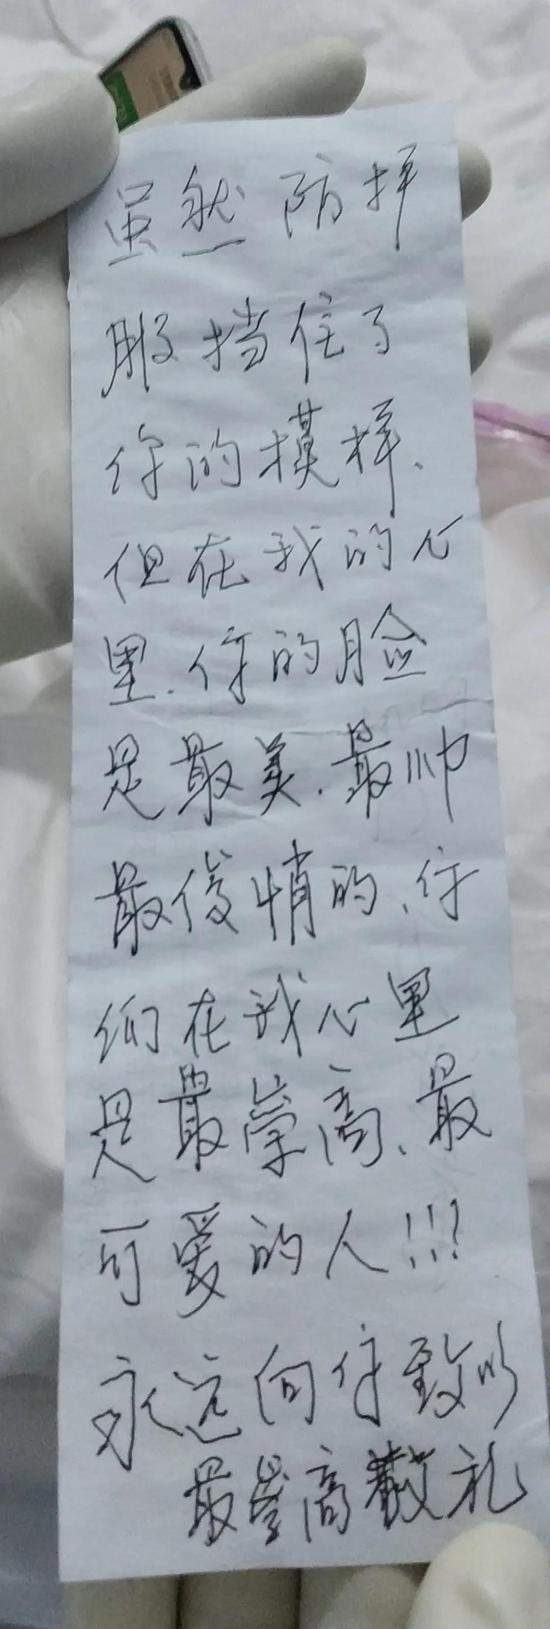 虽然防护
服挡住了
你的模样、
但在我的心
里.你的脸
是最美.最帅
最俊悄的、你
们在我心里
是最崇高、最
可爱的人!!!
永远向你致以
最崇高敬礼